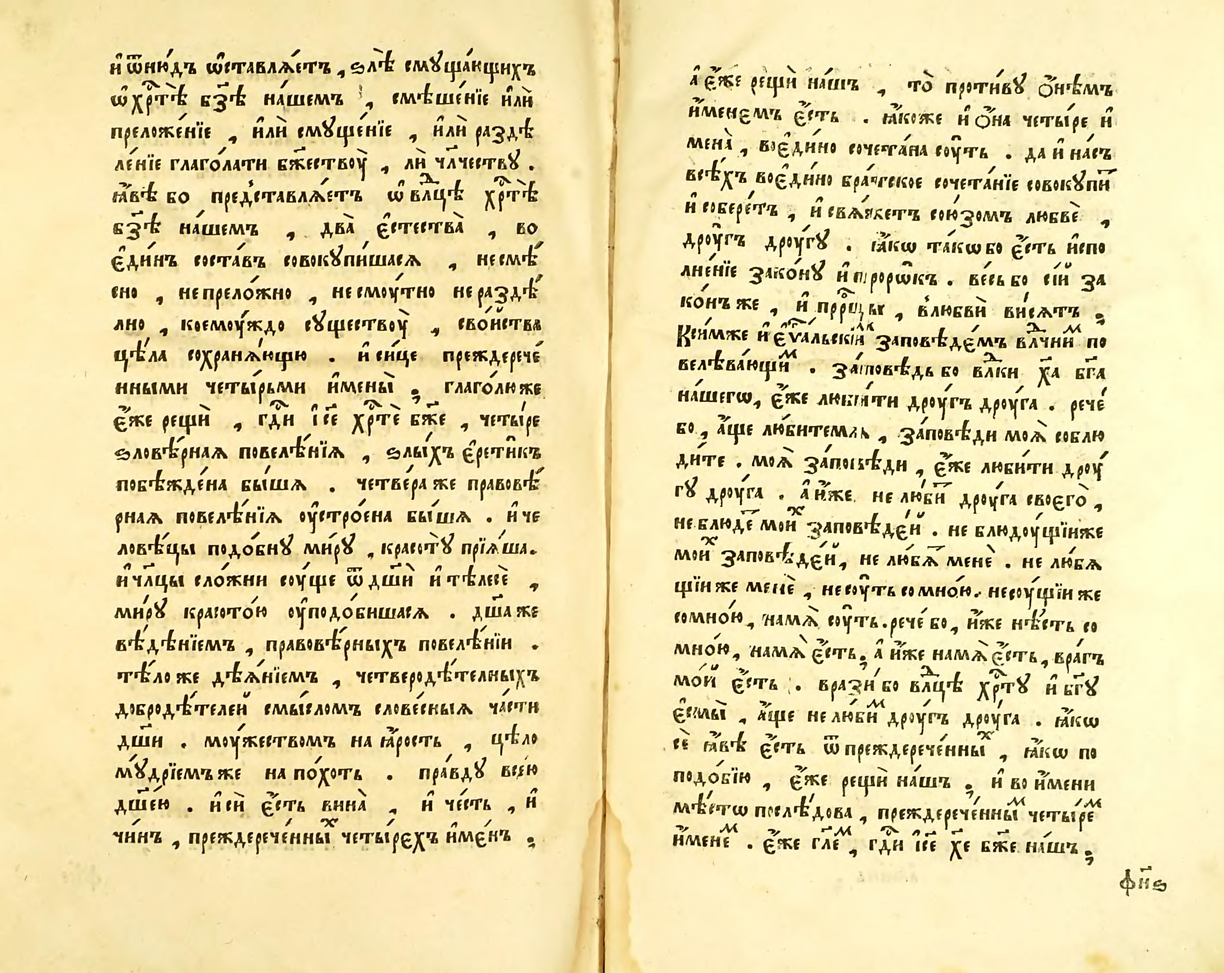 и҆ ѿню́дъ ѡ҆ставлѧ́етъ , ѕлѣ̀ смꙋща́ющихъ
ѡ҆ хрⷭ҇тѣ̀ бз҃ѣ на́шемъ , смѣше́нїе и҆лѝ
преложе́нїе , и҆лѝ смꙋще́нїе , и҆лѝ раздѣ
ле́нїе глаго́лати бж҃ествоу̀ , лѝ чл҃честву̀ .
ꙗ҆́вѣ бо представлѧ́етъ ѡ҆ влⷣцѣ хрⷭ҇тѣ̀
бз҃ѣ на́шемъ , два̀ є҆стества̀ , во
є҆ди́нъ соста́въ совокꙋпи́шасѧ , несмѣ́
сно , непрело́жно , несмоу́тно нераздѣ́
лно , коемоу́ждо сꙋществоу̀ , сво́йства
цѣ́ла сохранѧ́ющю . и҆ си́це преждерече́
нными четы́рьми и҆мены̀ ; глаго́люже
є҆́же рещѝ , гдⷭ҇и і҆се хрⷭ҇тѐ бж҃е , четы́ре
ѕловѣ́рнаѧ повелѣ́нїѧ , ѕлы́хъ є҆рети̑къ
побѣжде́на бы́шѧ . четве́ра же правовѣ́
рнаѧ повелѣ́нїѧ оу҆стро́ена бы́шѧ . и҆ че
ловѣ́цы подо́бнꙋ ми́рꙋ , красотꙋ̀ прїѧ́ша .
и҆ чл҃цы сло́жни соу́ще ѿ дш҃ѝ и҆ тѣлесѐ ,
ми́рꙋ красото́ю оу҆подо́бишасѧ . дш҃а же
вѣ́дѣнїемъ , правовѣ́рныхъ повелѣ́нїи .
тѣ́ло же дѣѧ́нїемъ , четверодѣ́тельныхъ
добродѣ́телей смы́сломъ слове́сныѧ ча́сти
дш҃и . моу́жествомъ на ꙗ҆́рость , цѣ́ло
мꙋ́дрїемъ же на по́хоть . пра́вдꙋ всє́ю
дш҃е́ю . и҆ се́й є҆́сть вина̀ , и҆ че́сть , и҆
чи́нъ , преждерече́нныⷯ четы́рехъ и҆ме́нъ ;
а҆ є҆́же рещѝ на́шъ , то̀ проти́вꙋ ѻ҆́нѣмъ
и҆́менемъ є҆́сть . ꙗ҆́коже и҆ ѻ҆на четы́ре и҆
мена̀ , вое҆ди́но сочета́на соу́ть . да и҆ на́съ
всѣ́хъ вое҆ди́но бра́тское сочета́нїе совокꙋпи́ⷮ
и҆ собере́тъ , и҆ свѧ́жетъ сою́зомъ любвѐ ,
дроу́гъ дроу́гꙋ . ꙗ҆́кѡ та́кѡ бо є҆́сть и҆спо
лне́нїе зако́нꙋ и҆ проро́ⷡкъ . ве́сь бо сі́й за
ко́нъ же , и҆ прⷪ҇ро́цы , в любвѝ вися́тъ ;
Ксимже и҆ є҆ѵⷢ҇альскіиⷨ заповѣдемъ влⷣчниⷨ по
велѣва́ющиⷨ . за́повѣдь бо влⷣки ха҃ бг҃а
на́шегѡ , є҆́же люби́ти дроу́гъ дроу́га . рече́
бо , а҆́ще любитемѧ , за́повѣди моѧ̀ соблю
ди́те . моѧ̀ за́повѣди , є҆́же люби́ти дроу́
гꙋ дроу́га . а҆ и҆́же не лю́биⷮ дроу́га своего̀ ,
не блюде́ⷮ мои́ⷯ за́повѣдей . не блюдоу́щїиже
мои́ⷯ за́повѣдей , не лю́бѧⷮ менѐ . не лю́бѧ
щїиже менѐ , не соу́ть со мно́ю . не соу́щїи же
со мно́ю , на мѧ̀ соу́ть . рече́ бо , и҆́же нѣ́сть со
мно́ю , на мѧ̀ є҆́сть ; а҆ и҆́же на мѧ̀ є҆́сть , вра́гъ
мо́й є҆́сть . врази́ бо влⷣцѣ хрⷭ҇тꙋ̀ и҆ бг҃ꙋ
є҆смы̀ , а҆́ще не лю́биⷨ дроу́гъ дроу́га . ꙗ҆́кѡ
сѐ ꙗ҆́вѣ є҆́сть ѿ преждерече́нныⷯ , ꙗ҆́кѡ по
подо́бїю , є҆́же рещѝ на́шъ ; и҆ во и҆́мени
мѣ́стѡ послѣ́дова , преждерече́нныⷨ четы́реⷨ
и҆́менеⷨ . є҆́же гл҃еⷨ , гдⷭ҇и і҆се хе҃ бж҃е на́шъ ;
фн҃ѕ